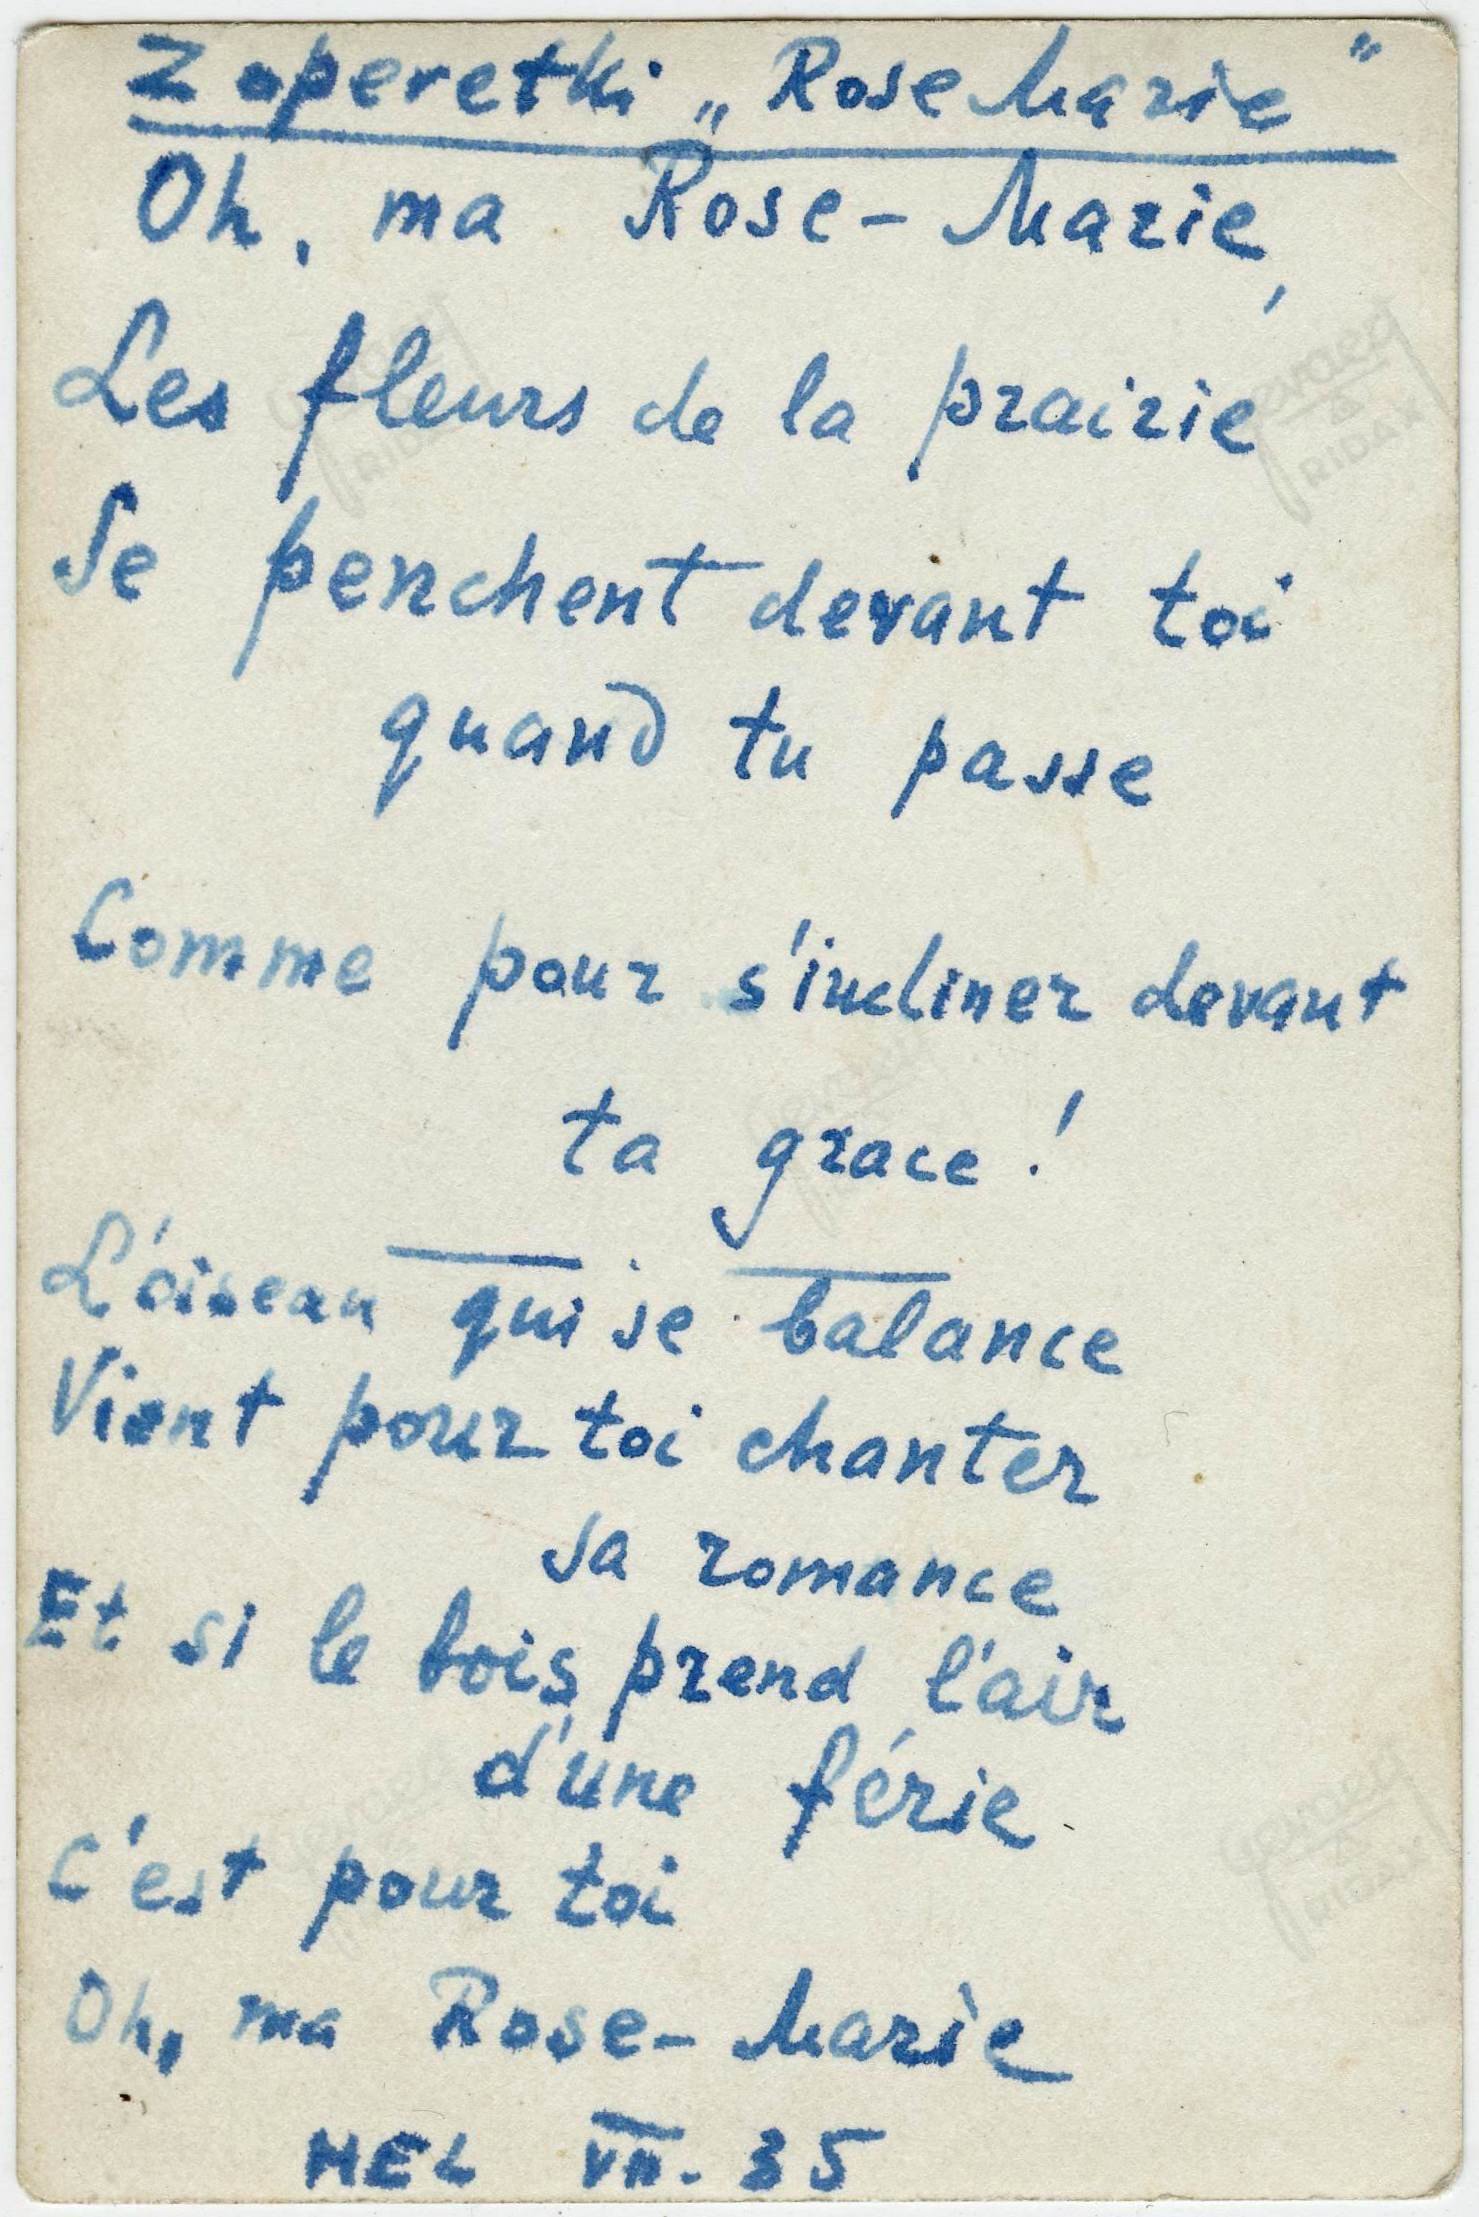 Z operetki „Rose Marie"
Oh, ma Rose-Marie,
Les fleurs de la prairie
Se penchent devant toi
quand tu passe
Comme pour s'incliner devant
ta grace!
L'oiseau qui se balance
Vient pour toi chanter
sa romance
Et si le bois prend l'air
d'une férie
C'est pour toi
Oh, ma Rose-Marie
HEL VII. 35
Gevaert
RIDAX